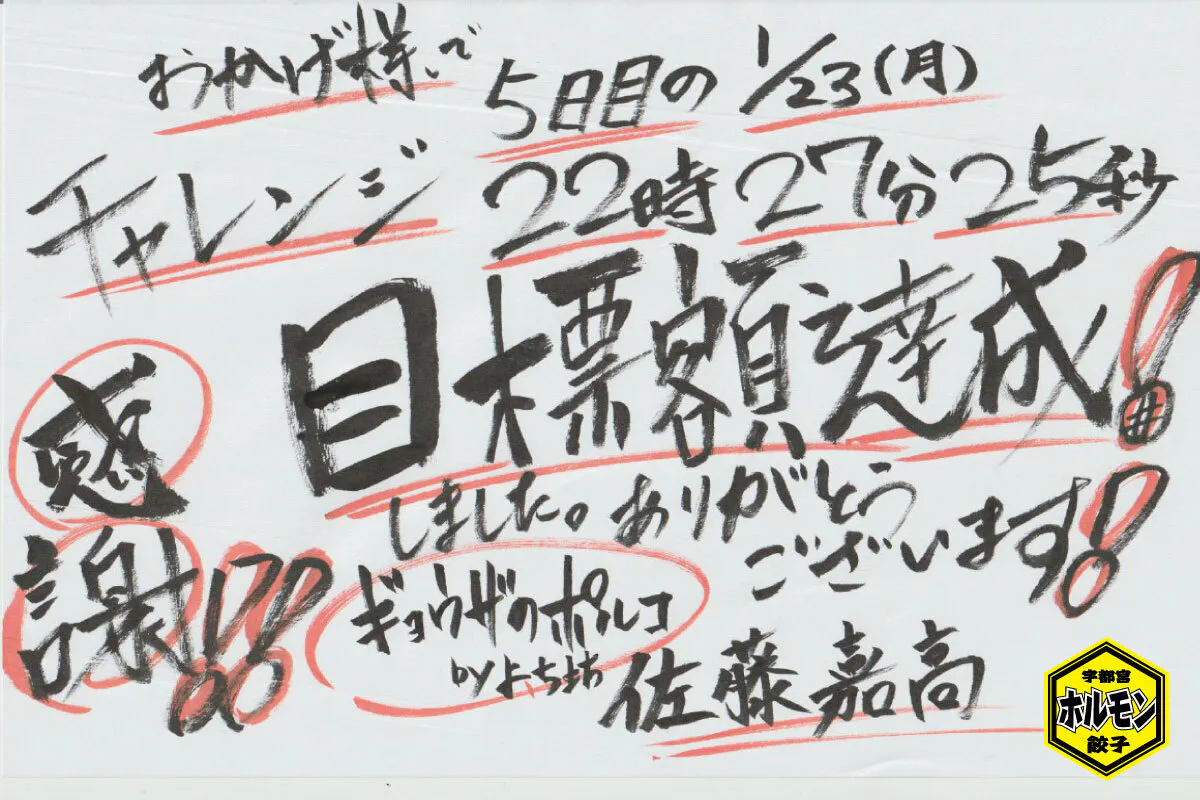 おかげ様で
5日目の 1/23(月)
チャレンジ 22時27分25秒
目標額達成!
しました。ありがとう
ございます!
感謝!!
ギョウザのポルコ
by よっちまち
佐藤嘉高
宇都宮
ホルモン
餃子